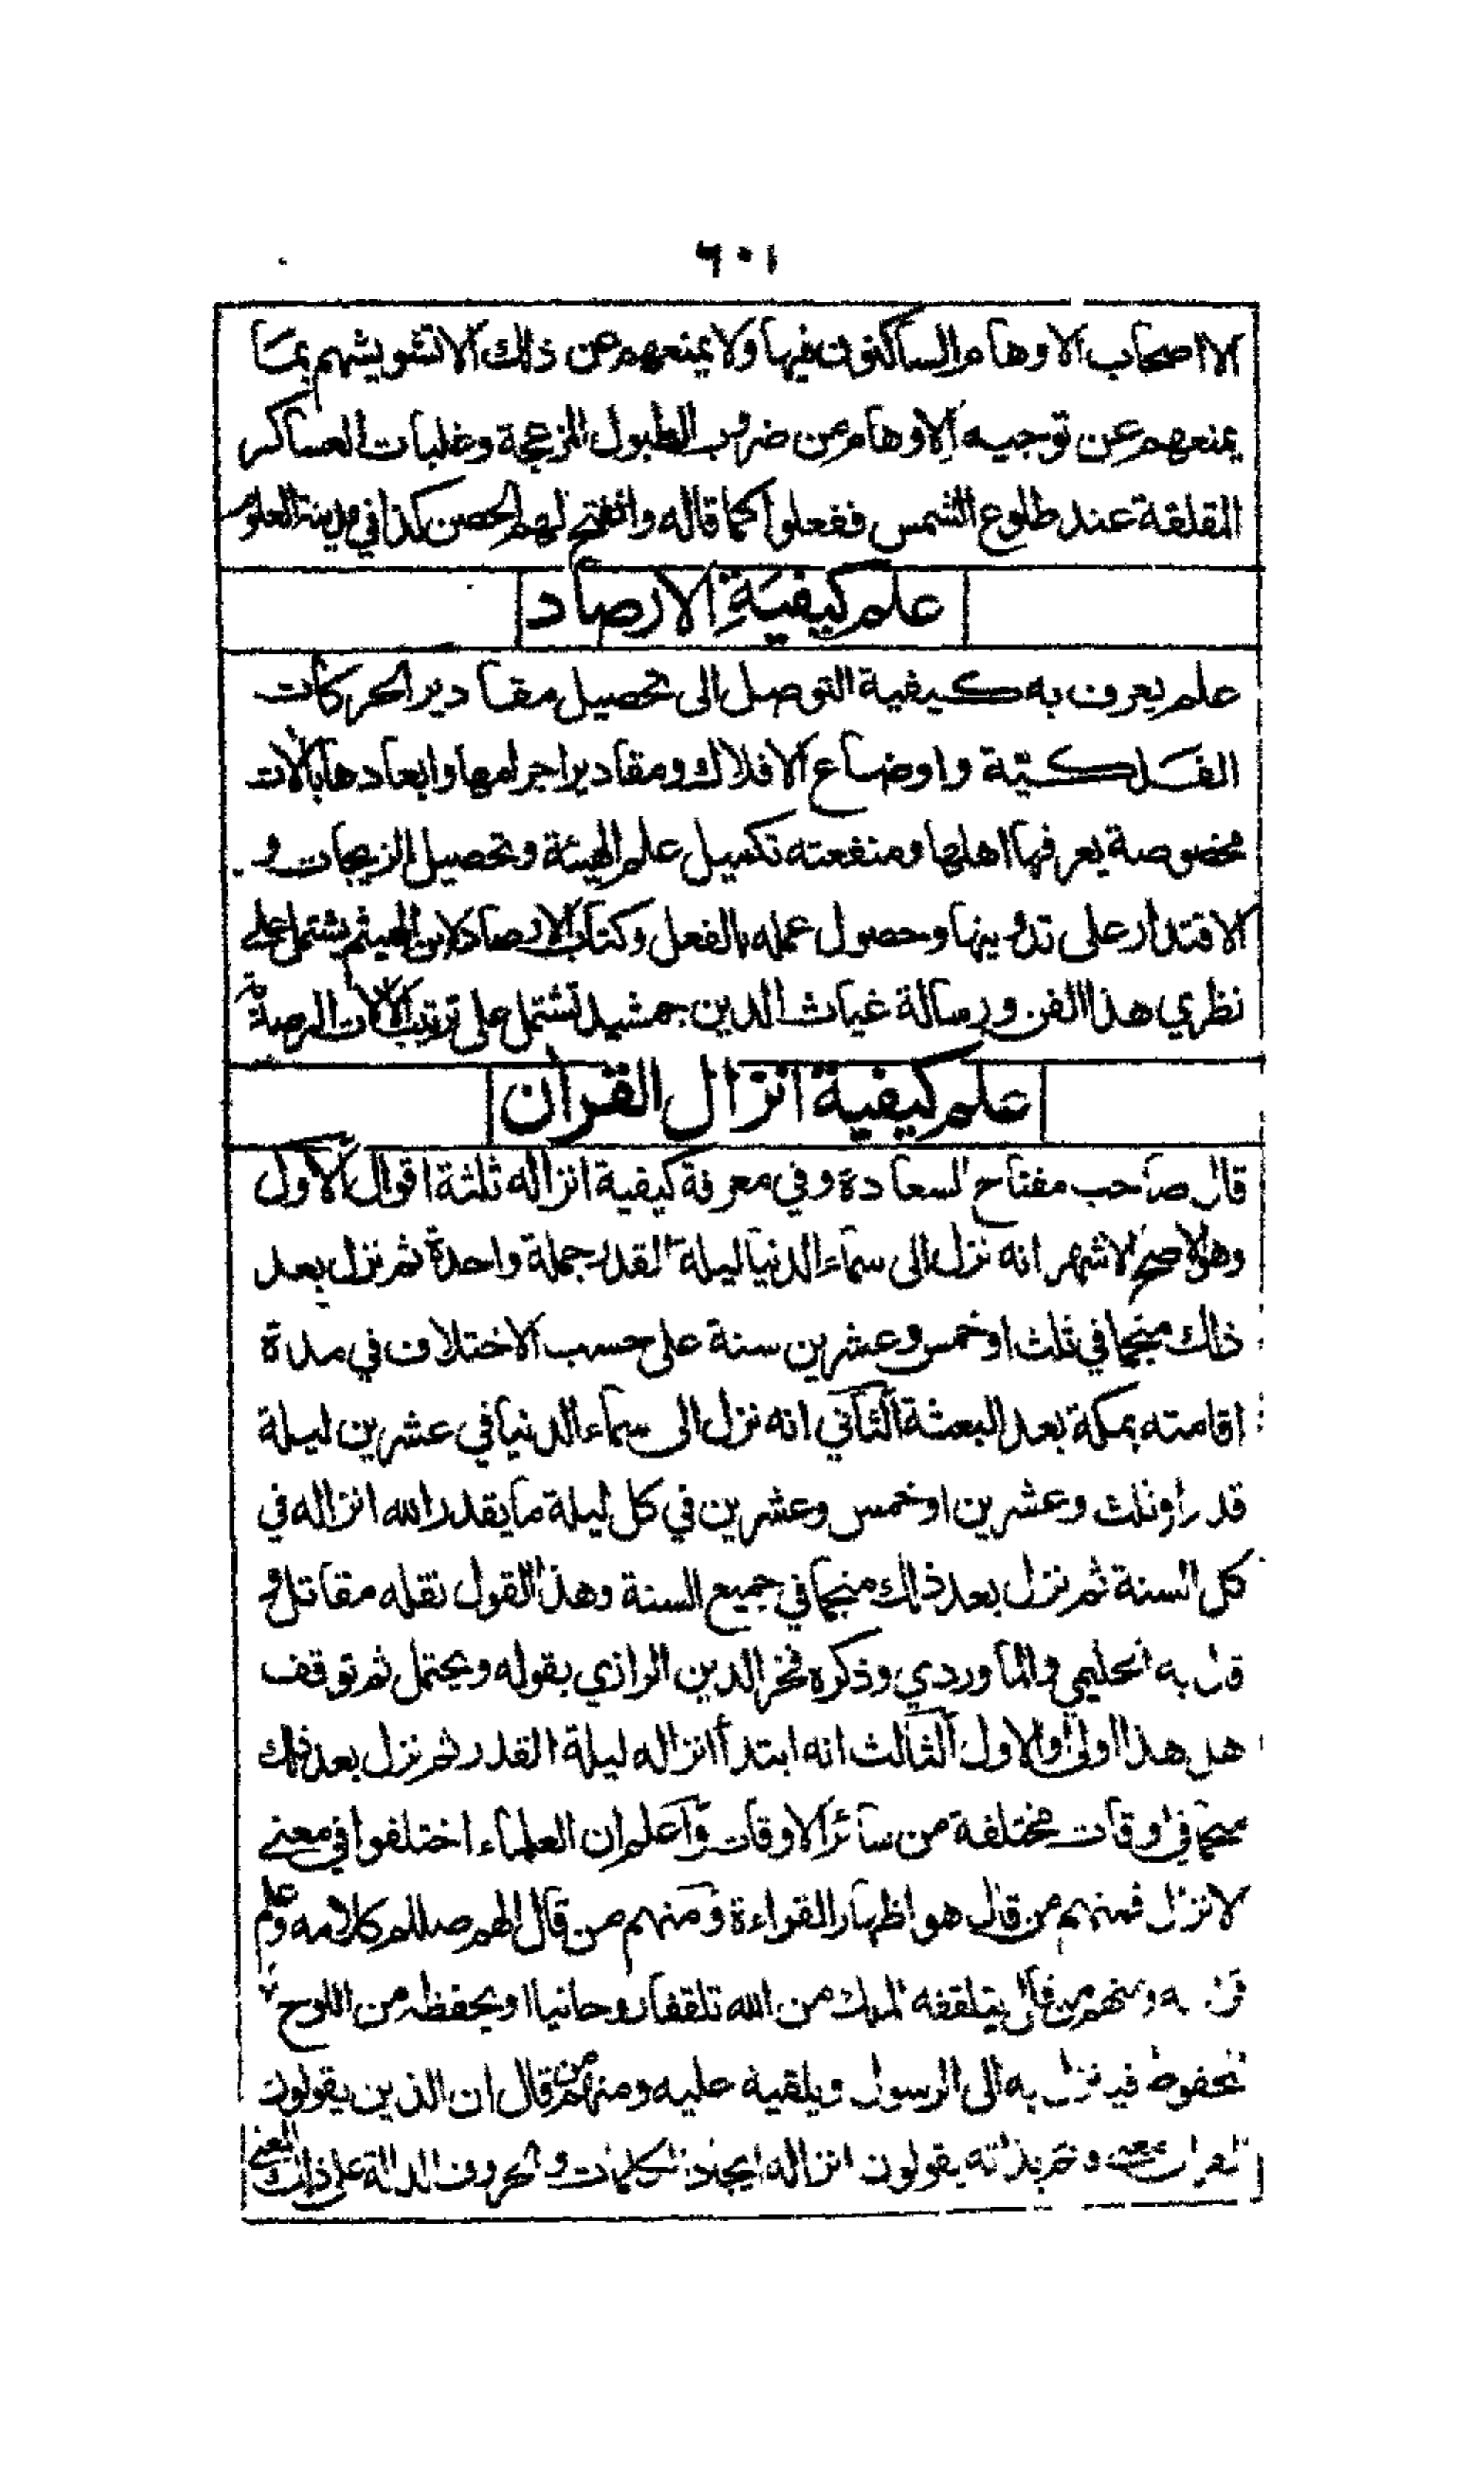 ٦٠١
الا اصحاب الاوهام الساكنون فيها ولا يمنعهم عن ذلك الا تشويشهم بما
يمنعهم عن توجيه الاوهام من ضرب الطبول المزعجة وغلبات العساكر
المقلقة عند طلوع الشمس ففعلوا كما قاله وانفتح لهم الحصن كذا في مدينة العلوم
علم كيفية الارصاد
علم يعرف به كيفية التوصل الى تحصيل مقادير الحركات
الفلكية واوضاع الافلاك ومقادير اجرامها وابعادها بالات
مخصوصة يعرفها اهلها ومنفعته تكميل علم الهيئة وتحصيل الزيجات و
الاقتدار على تدوينها وحصول عمله بالفعل وكتاب الارصاد لابن الهيثم يشتمل على
نظري هذا الفن ورسالة غياث الدين جمشيد تشتمل على ترتيب الآلات الرصدية
علم كيفية انزال القرآن
قال صاحب مفتاح السعادة وفي معرفة كيفية انزاله ثلثة اقوال الاول
وهو الاصح الاشهر انه نزل الى سماء الدنيا ليلة القدر جملة واحدة ثم نزل بعد
ذلك منجما في ثلث او خمس وعشرين سنة على حسب الاختلاف في مدة
اقامته بمكة بعد البعثة الثاني انه نزل الى سماء الدنيا في عشرين ليلة
قدر او ثلث وعشرين او خمس وعشرين في كل ليلة ما يقدر الله انزاله في
كل السنة ثم نزل بعد ذلك منجما في جميع السنة وهذا القول نقله مقاتل و
قال به الحليمي والماوردي وذكره فخر الدين الرازي بقوله ويحتمل ثم توقف
هل هذا اولى او الاول الثالث انه ابتدأ انزاله ليلة القدر ثم نزل بعد ذلك
منجما في اوقات مختلفة من سائر الاوقات واعلم ان العلماء اختلفوا في معنى
الانزال فمنهم من قال هو اظهار القراءة ومنهم من قال الهم صللم كلامه وعلم
قراءته ومنهم من قال يتلقفه الملك من الله تلقفا روحانيا او يحفظه من اللوح
المحفوظ فينزل به الى الرسول ويلقيه عليه ومنهم من قال ان الذين يقولون
القران معنى بذاته يقولون انزاله ايجاد الكلمات والحروف الدالة على ذلك المعنى